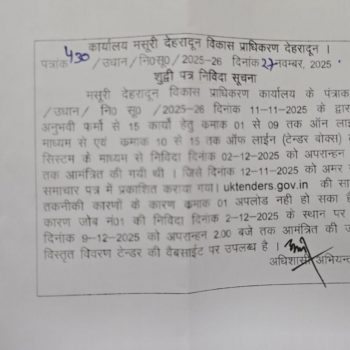 कार्यालय मसूरी देहरादून विकास प्राधिकरण देहरादून ।
पत्रांक 430 /उधान/नि0सू0/2025-26 दिनांक 27 नवम्बर, 2025
शुद्दी पत्र निविदा सूचना
मसूरी देहरादून विकास प्राधिकरण कार्यालय के पंत्राक
/उधान/ नि0 सू0 /2025-26 दिनांक 11-11-2025 के द्वार
अनुभवी फर्मो से 15 कार्यो हेतु कमाक 01 से 09 तक ऑन लाई
माध्यम से एवं कमाक 10 से 15 तक ऑफ लाईन (टेन्डर वोक्स)
सिस्टम के माध्यम से निविदा दिनांक 02-12-2025 को अपरान्हन
तक आमंत्रित की गयी थी । जिसे दिनांक 12-11-2025 को अमर
समाचार पत्र में प्रकाशित कराया गया। uktenders.gov.in की सा
तकनीकी कारणों के कारण कमाक 01 अपलोड नही हो सका है
कारण जोब नं01 की निविदा दिनांक 2-12-2025 के स्थान पर
दिनांक 9-12-2025 को अपरान्हन 2.00 बजे तक आमंत्रित की ज
विस्तृत विवरण टेन्डर की वैबसाईट पर उपलब्ध है ।
अधिशासी अभियन्त